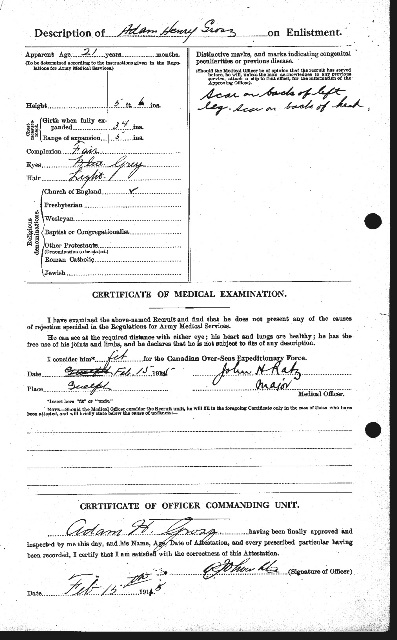 Description of Adam Henry Grosz on Enlistment.
Apparent Age 21 years months.
(To be determined according to the instructions given in the Regulations for Army Medical Services.)
Height 5 ft. 6 ins.
Chest measurement
Girth when fully expanded 34 ins.
Range of expansion 5 ins.
Complexion Fair
Eyes Blue Grey
Hair Light
Religious denominations.
Church of England
Presbyterian
Wesleyan
Baptist or Congregationalist
Other Protestants
(Denomination to be stated.)
Roman Catholic
Jewish
Distinctive marks, and marks indicating congenital peculiarities or previous disease.
(Should the Medical Officer be of opinion that the recruit has served before, he will, unless the man acknowledges to any previous service, attach a slip to that effect, for the information of the Approving Officer).
Scar on back of left
leg. Scar on back of head.
CERTIFICATE OF MEDICAL EXAMINATION.
I have examined the above-named Recruit and find that he does not present any of the causes
of rejection specified in the Regulations for Army Medical Services.
He can see at the required distance with either eye; his heart and lungs are healthy; he has the
free use of his joints and limbs, and he declares that he is not subject to fits of any description.
I consider him* fit for the Canadian Over-Seas Expeditionary Force.
Date Feb. 15 1915
Place Guelph
John H Katz
Major
Medical Officer.
*Insert here "fit" or "unfit."
NOTE.—Should the Medical Officer consider the Recruit unfit, he will fill in the foregoing Certificate only in the case of those who have
been attested, and will briefly state below the cause of unfitness:—
CERTIFICATE OF OFFICER COMMANDING UNIT.
Adam H. Grosz having been finally approved and
inspected by me this day, and his Name, Age, Date of Attestation, and every prescribed particular having
been recorded, I certify that I am satisfied with the correctness of this Attestation.
(Signature of Officer)
Date Feb 15th 1915